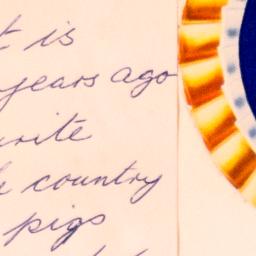 t is
years ago
country
pigs